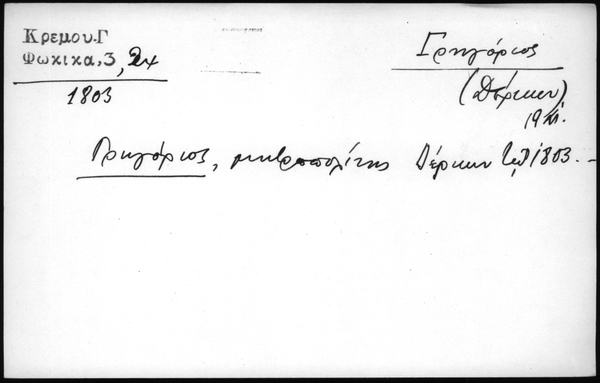 Κρεμου.Γ
Φωκικα,3, 24
1803
Γρηγόριος
(Δέρκων)
Γρηγόριος, μητροπολίτης Δέρκων 1803.-